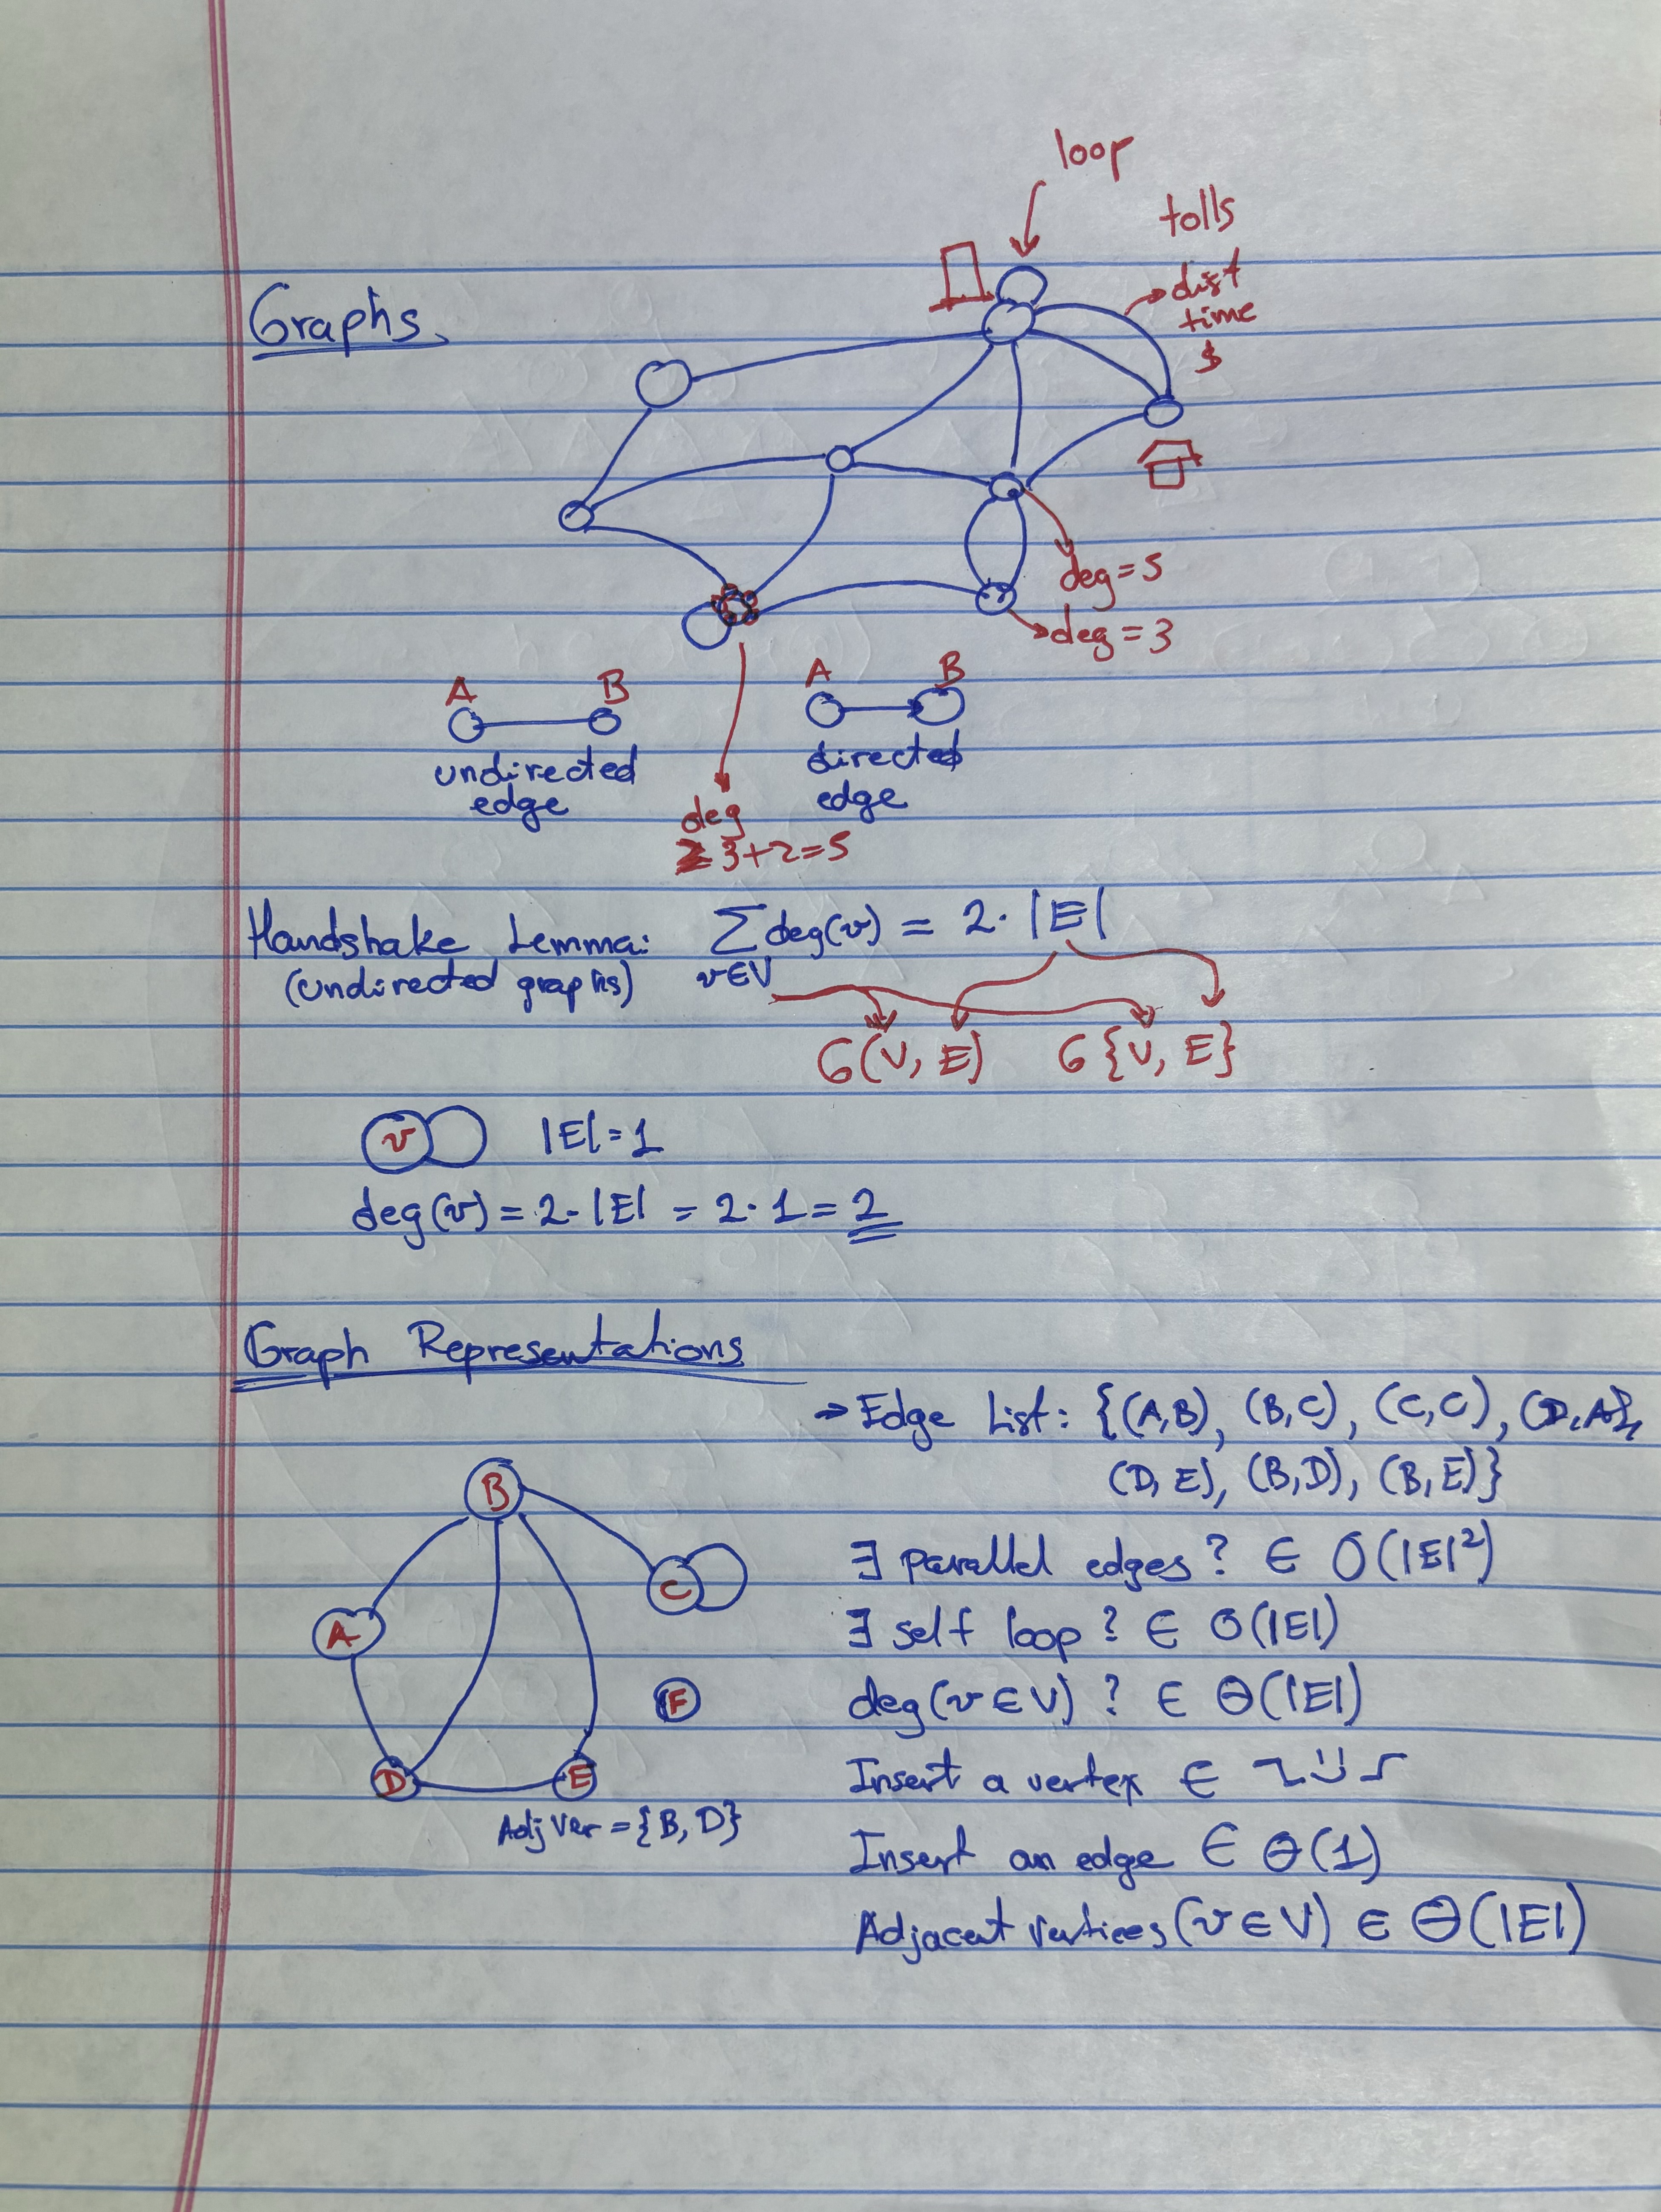 loop
tolls
Graphs
dist
time
$
deg=5
deg=3
A B
A B
undirected
edge
directed
edge
deg
3+2=5
Handshake Lemma: ∑ deg(v) = 2·|E|
(undirected graphs) v∈V
G(V, E) G{V, E}
v |E|=1
deg(v) = 2·|E| = 2·1 = 2
Graph Representations
→ Edge List: {(A,B), (B,C), (C,C), (D,A),
(D,E), (B,D), (B,E)}
B
∃ parallel edges? ∈ O(|E|²)
C
A
∃ self loop? ∈ O(|E|)
F
deg(v∈V)? ∈ Θ(|E|)
D E
Insert a vertex ∈
Adj Ver = {B, D}
Insert an edge ∈ Θ(1)
Adjacent Vertices(v∈V) ∈ Θ(|E|)